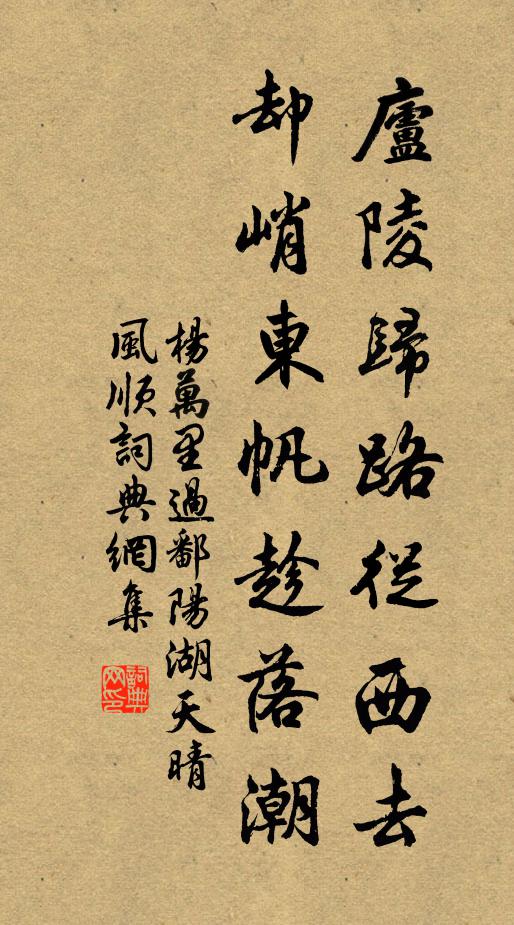 廬陵歸路從西去
却峭東帆趁落潮
楊萬里過鄱陽湖天晴
風順詞典網集
詞典
网印